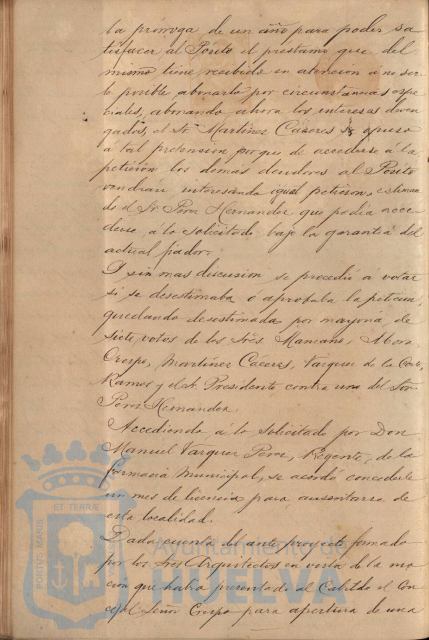 la prórroga de un año para poder sa
tisfacer al Pósito el préstamo que del
mismo tiene recibido en atención á no ser
le posible abonarlo por circunstancias espe
ciales, abonando ahora los intereses deven
gados, el Sr. Martinez Cáceres se opuso
á tal pretension porque de accederse á la
peticion los demas deudores al Pósito
vendrian interesando igual peticion, estiman
do el Sr. Perez Hernandez que podia acce
derse á lo solicitado bajo la garantia del
actual fiador.
Y sin mas discusion se procedió a votar
si se desestimaba ó aprobaba la peticion,
quedando desestimada por mayoria de
siete votos de los Sres
Crespo, Martinez Cáceres, Vazquez de la Corte,
Ramos y el Sr. Presidente contra uno del Señor
Perez Hernandez.
Accediendo á lo solicitado por Don
Manuel Vazquez Perez, Regente de la
farmacia Municipal, se acordó concederle
un mes de licencia para ausentarse de
esta localidad.
Dada cuenta del ante proyecto formado
por los Sres Arquitectos en vista de la mo
cion que habia presentado al Cabildo el Con
cejal Señor Crespo para apertura de una
PORTUS MARIS ET TERRÆ
Ayuntamiento de
HUELVA